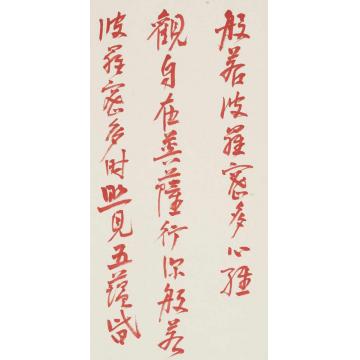 般若波羅蜜多心經
觀自在菩薩行深般若
波羅蜜多時照見五蘊皆